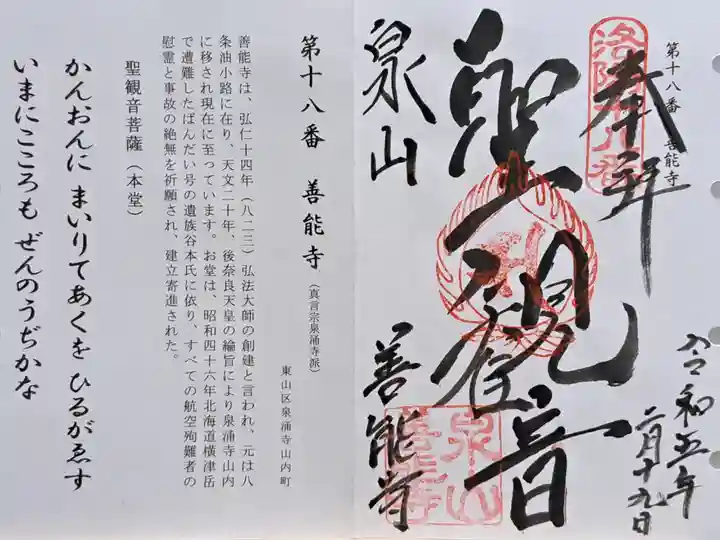 第十八番 善能寺
奉拝
洛陽十八番
聖観音
泉山
善能寺
泉山
善能寺
令和五年
二月十九日
第十八番 善能寺（真言宗泉涌寺派）
東山区泉涌寺山内町
善能寺は、弘仁十四年（八二三）弘法大師の創建と言われ、元は八
条油小路に在り、天文二十年、後奈良天皇の綸旨により泉涌寺山内
に移され現在に至っています。お堂は、昭和四十六年北海道横津岳
で遭難したばんだい号の遺族谷本氏に依り、すべての航空殉難者の
慰霊と事故の絶無を祈願され、建立寄進された。
聖観音菩薩（本堂）
かんおんに まいりてあくを ひるがゑす
いまにこころも ぜんのうぢかな